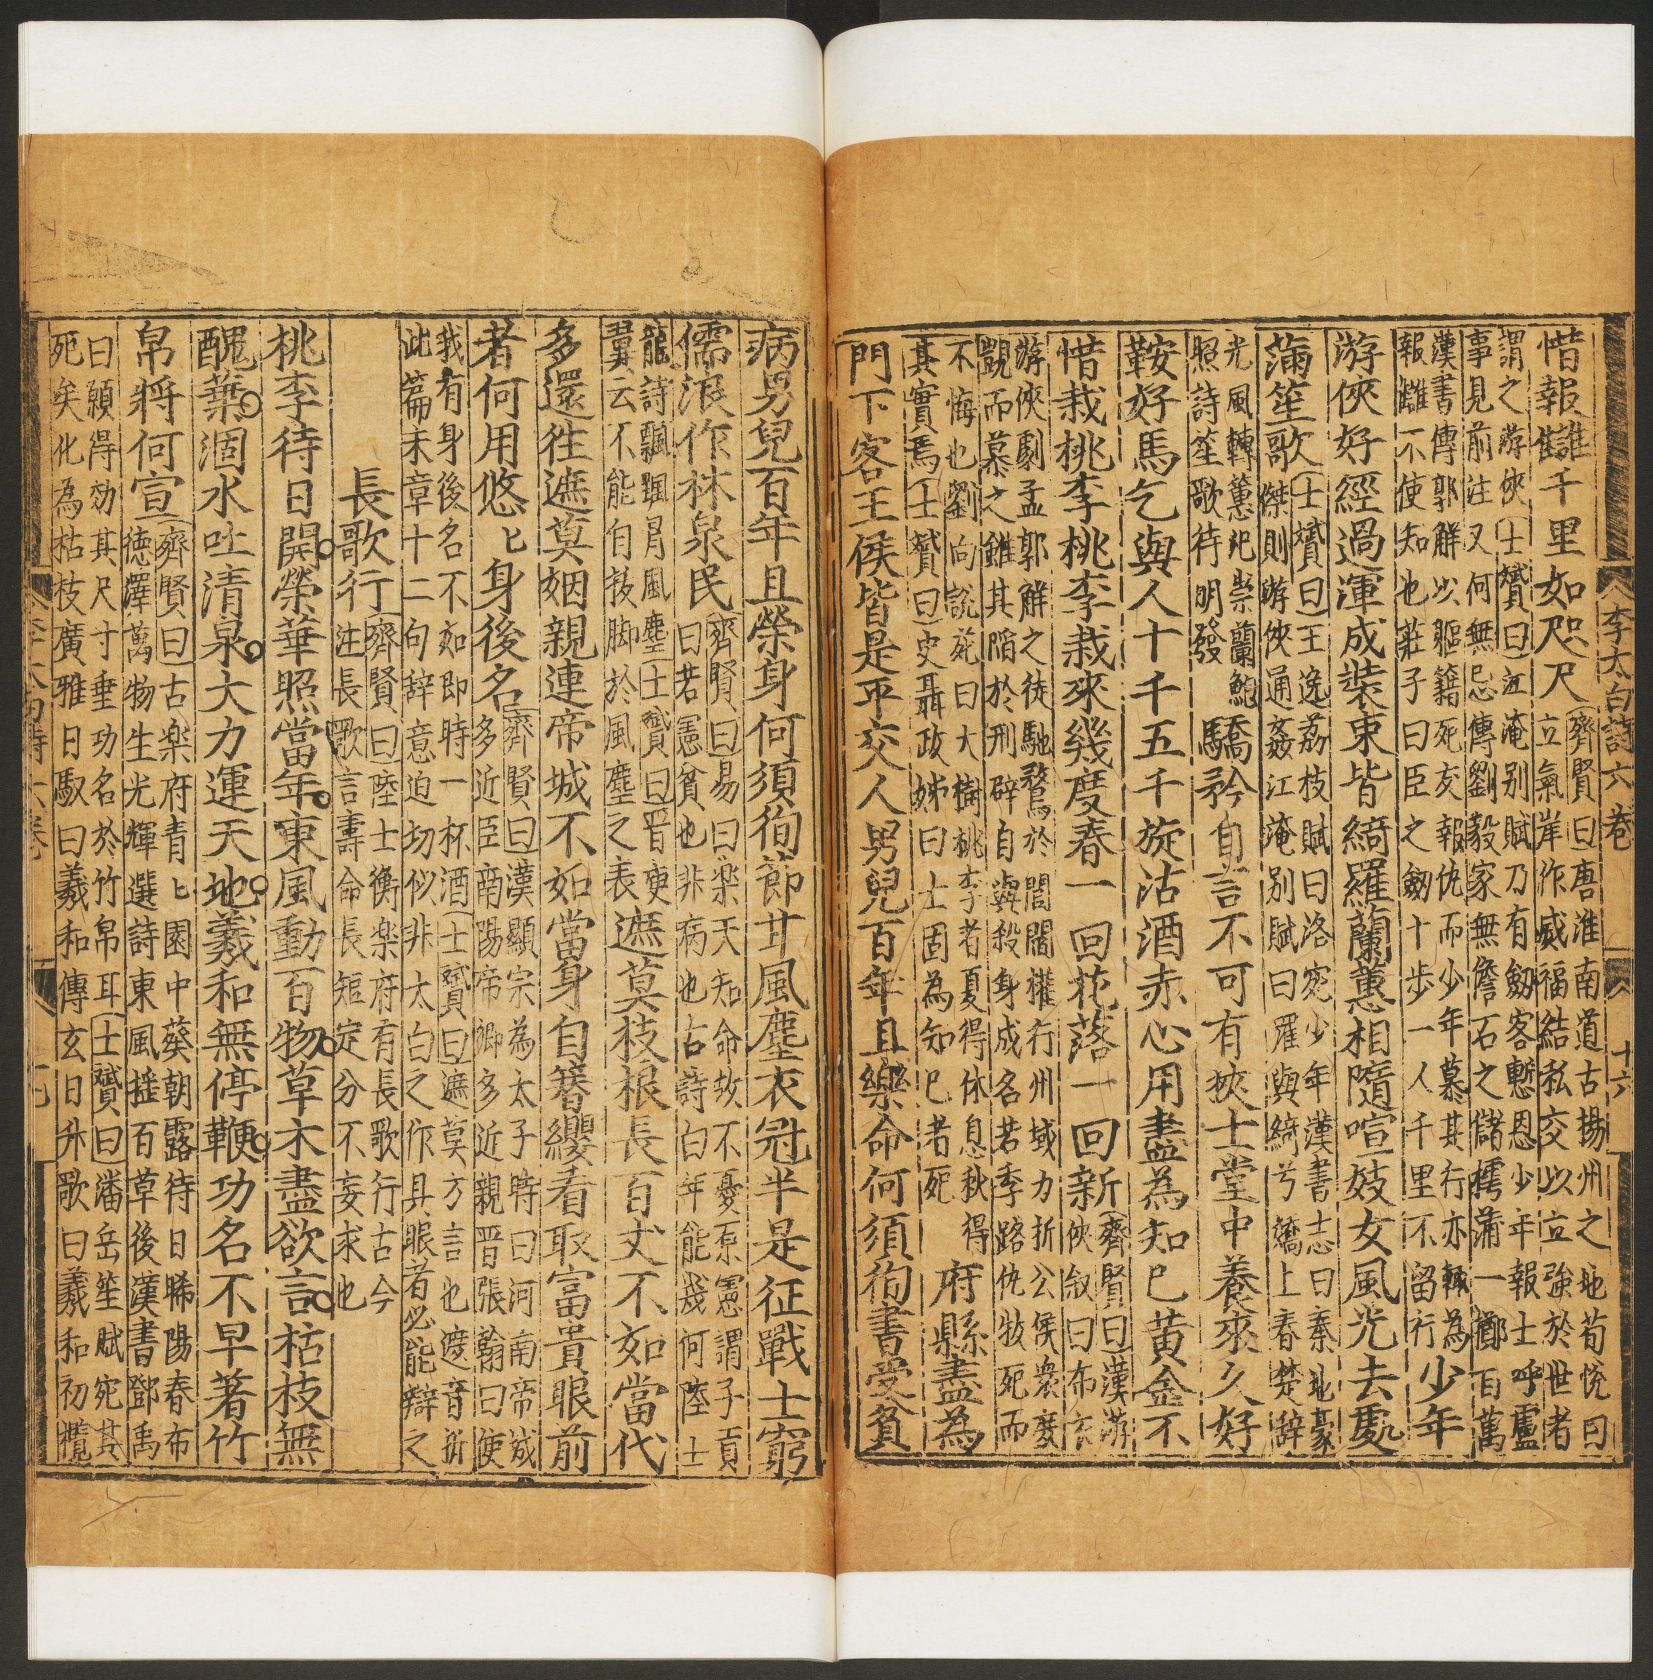 惜報讎千里如咫尺齊賢曰唐淮南道古揚州之地荀悅曰
立氣岸作威福結私交以立強於世者
謂之游俠士贇曰江淹別賦乃有劒客慙恩少年報士呼盧
事見前注又何無忌傳劉毅家無儋石之儲摴蒲一擲百萬
漢書傳郭解以軀籍死友報仇而少年慕其行亦輒為
報讎不使知也莊子曰臣之劒十步一人千里不留行少年
游俠好經過渾成裝束皆綺羅蘭蕙相隨喧妓女風光去處
滿笙歌士贇曰王逸荔枝賦曰洛宛少年漢書志曰秦地豪
傑則游俠通姦江淹別賦曰羅與綺兮嬌上春楚辭
光風轉蕙汜崇蘭鮑
照詩笙歌待明發驕矜自言不可有狹士堂中養來久好
鞍好馬乞與人十千五千旋沽酒赤心用盡為知已黃金不
惜栽桃李桃李栽來幾度春一回花落一回新齊賢曰漢游
俠叙曰布衣
游俠劇孟郭解之徒馳騖於閭閻權行州域力折公侯衆庶
覬而慕之雖其陷於刑辟自與殺身成名若季路仇牧死而
不悔也劉向說苑曰大樹桃李者夏得休息秋得
其實焉士贇曰史聶政姊曰士固為知巳者死府縣盡為
門下客王侯皆是平交人男兒百年且樂命何須徇書受貧
李太白詩六卷
十六
病男兒百年且榮身何須徇節甘風塵衣冠半是征戰士窮
儒浪作林泉民齊賢曰易曰樂天知命故不憂原憲謂子貢
曰若憲貧也非病也古詩白年能幾何陸士
龍詩飄飄冒風塵士贇曰晋庾
翼云不能自拔脚於風塵之表遮莫枝根長百丈不如當代
多還往遮莫姻親連帝城不如當身自簪纓看取富貴眼前
者何用悠〻身後名齊賢曰漢顯宗為太子時曰河南帝城
多近臣南陽帝鄉多近親晋張翰曰使
我有身後名不如即時一杯酒士贇曰遮莫方言也遮音折
此篇末章十二句辞意迫切似非太白之作具眼者必能辯之
長歌行齊賢曰陸士衡樂府有長歌行古今
注長歌言壽命長短定分不妄求也
桃李待日開榮華照當年東風動百物草木盡欲言枯枝無
醜葉涸水吐清泉大力運天地羲和無停鞭功名不早著竹
帛將何宣齊賢曰古樂府青〻園中葵朝露待日晞陽春布
德澤萬物生光輝選詩東風搖百草後漢書鄧禹
曰願得効其尺寸垂功名於竹帛耳士贇曰潘岳笙賦宛其
死矣化為枯枝廣雅日馭曰羲和傳玄日升歌曰羲和初攬